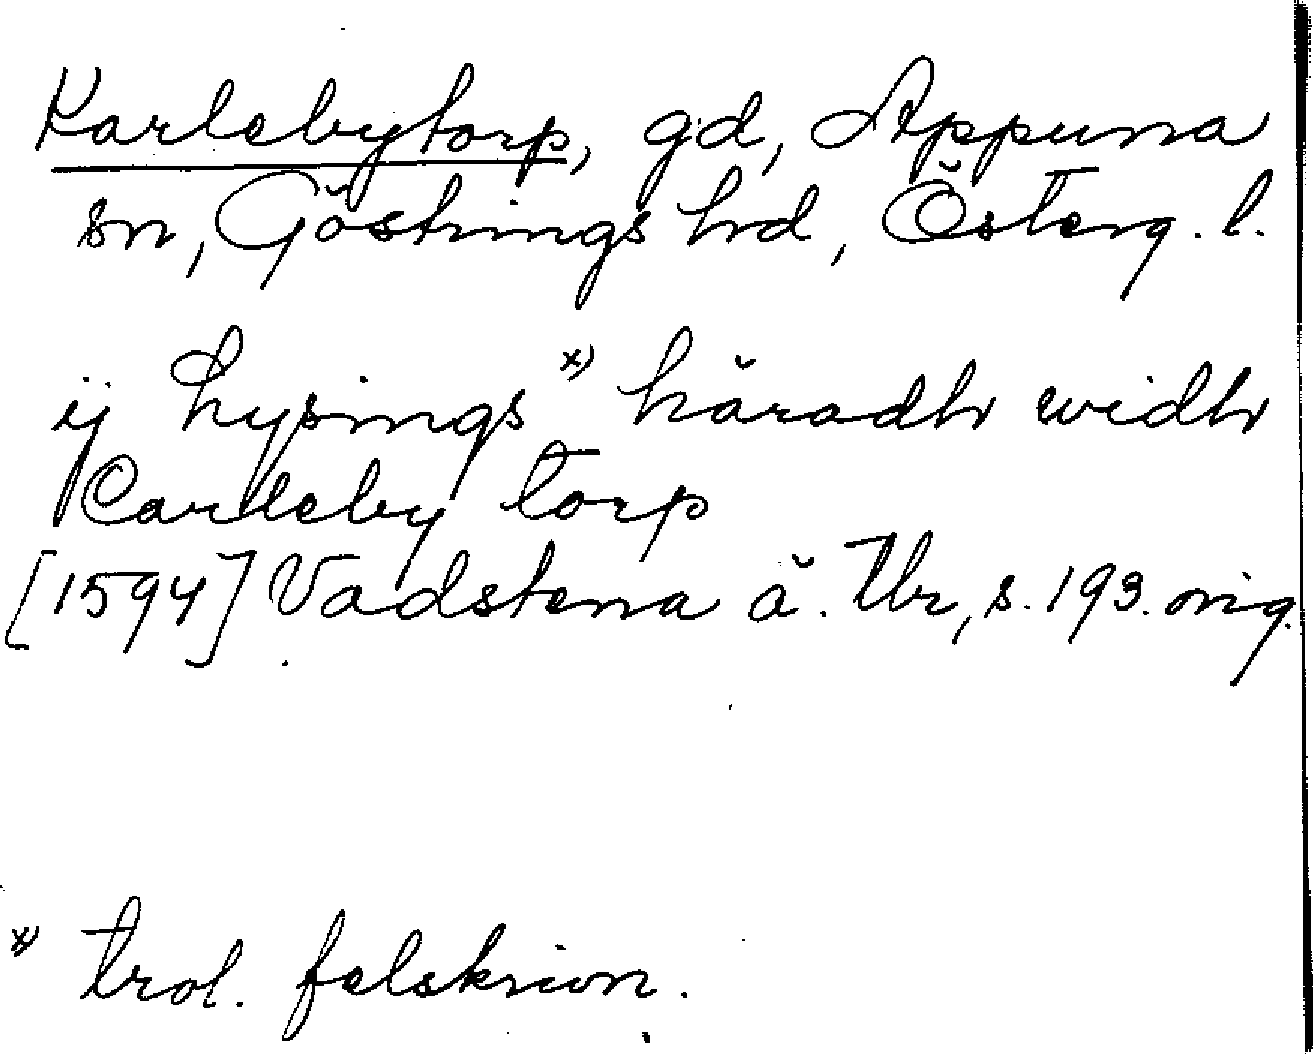 Karlebytorp, gd, Appuna
sn, Göstrings hd, Österg. l.
ij Lysings x) häradh widh
Carleby torp
[1594] Vadstena ä. Tbr, s. 193. orig.
x) trol. felskrivn.